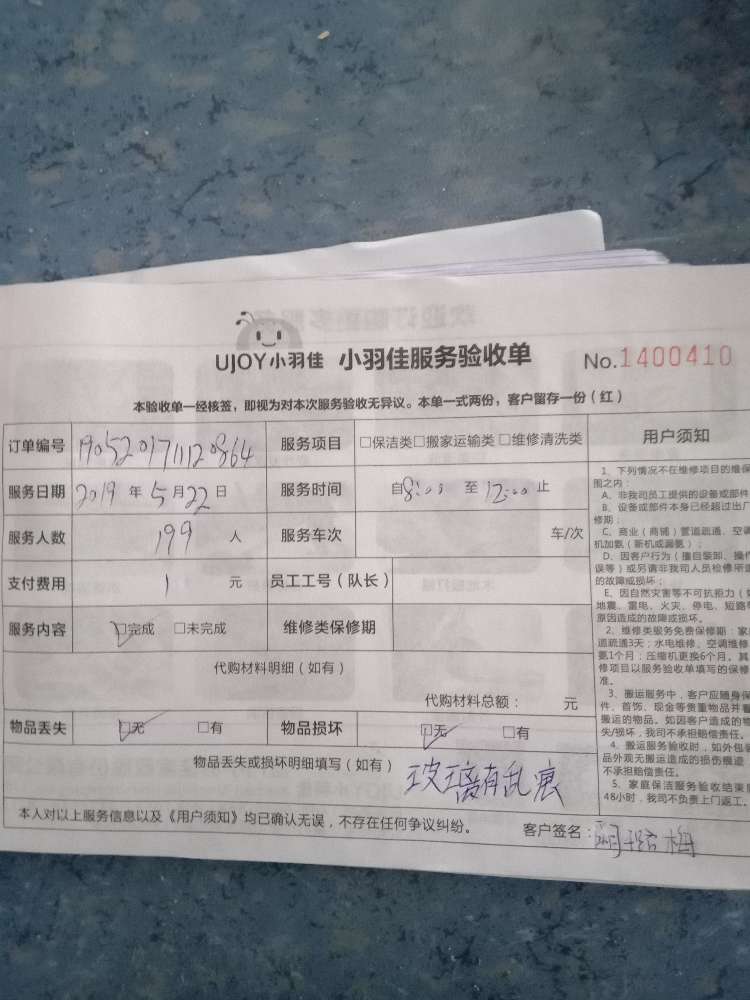 UJOY小羽佳 小羽佳服务验收单 No.1400410
本验收单一经核签，即视为对本次服务验收无异议。本单一式两份，客户留存一份（红）
订单编号 1905201711120864 服务项目 □保洁类□搬家运输类 □维修清洗类
服务日期 2019 年 5 月 22 日 服务时间 自8:00 至 12:00 止
服务人数 199 人 服务车次 车/次
支付费用 1 元 员工工号（队长）
服务内容 ☑完成 □未完成 维修类保修期
代购材料明细（如有）
代购材料总额： 元
物品丢失 ☑无 □有 物品损坏 ☑无 □有
物品丢失或损坏明细填写（如有） 玻璃有乱痕
本人对以上服务信息以及《用户须知》均已确认无误，不存在任何争议纠纷。 客户签名：
用户须知
1、下列情况不在维修项目的维保
围之内：
A、非我司员工提供的设备或部件
B、设备或部件本身已经超过出厂
修期；
C、商业（商铺）管道疏通、空调
机加氨（新机或漏氨）；
D、因客户行为（擅自装卸、操作
误等）或另请非我司人员检修所造
的故障或损坏；
E、因自然灾害等不可抗拒力（如
地震、雷电、火灾、停电、短路等
原因造成的故障或损坏。
2、维修类服务免费保修期：家
道疏通3天；水电维修、空调维修
氨1个月；压缩机更换6个月。其
修项目以服务验收单填写的保修
准。
3、搬运服务中，客户应随身保
件、首饰、现金等贵重物品并看
搬运的物品。如因客户造成的物
失/损坏，我司不承担赔偿责任。
4、搬运服务验收时，如外包装
品外观无搬运造成的损伤痕迹
不承担赔偿责任。
5、家庭保洁服务验收结束后
48小时，我司不负责上门返工。